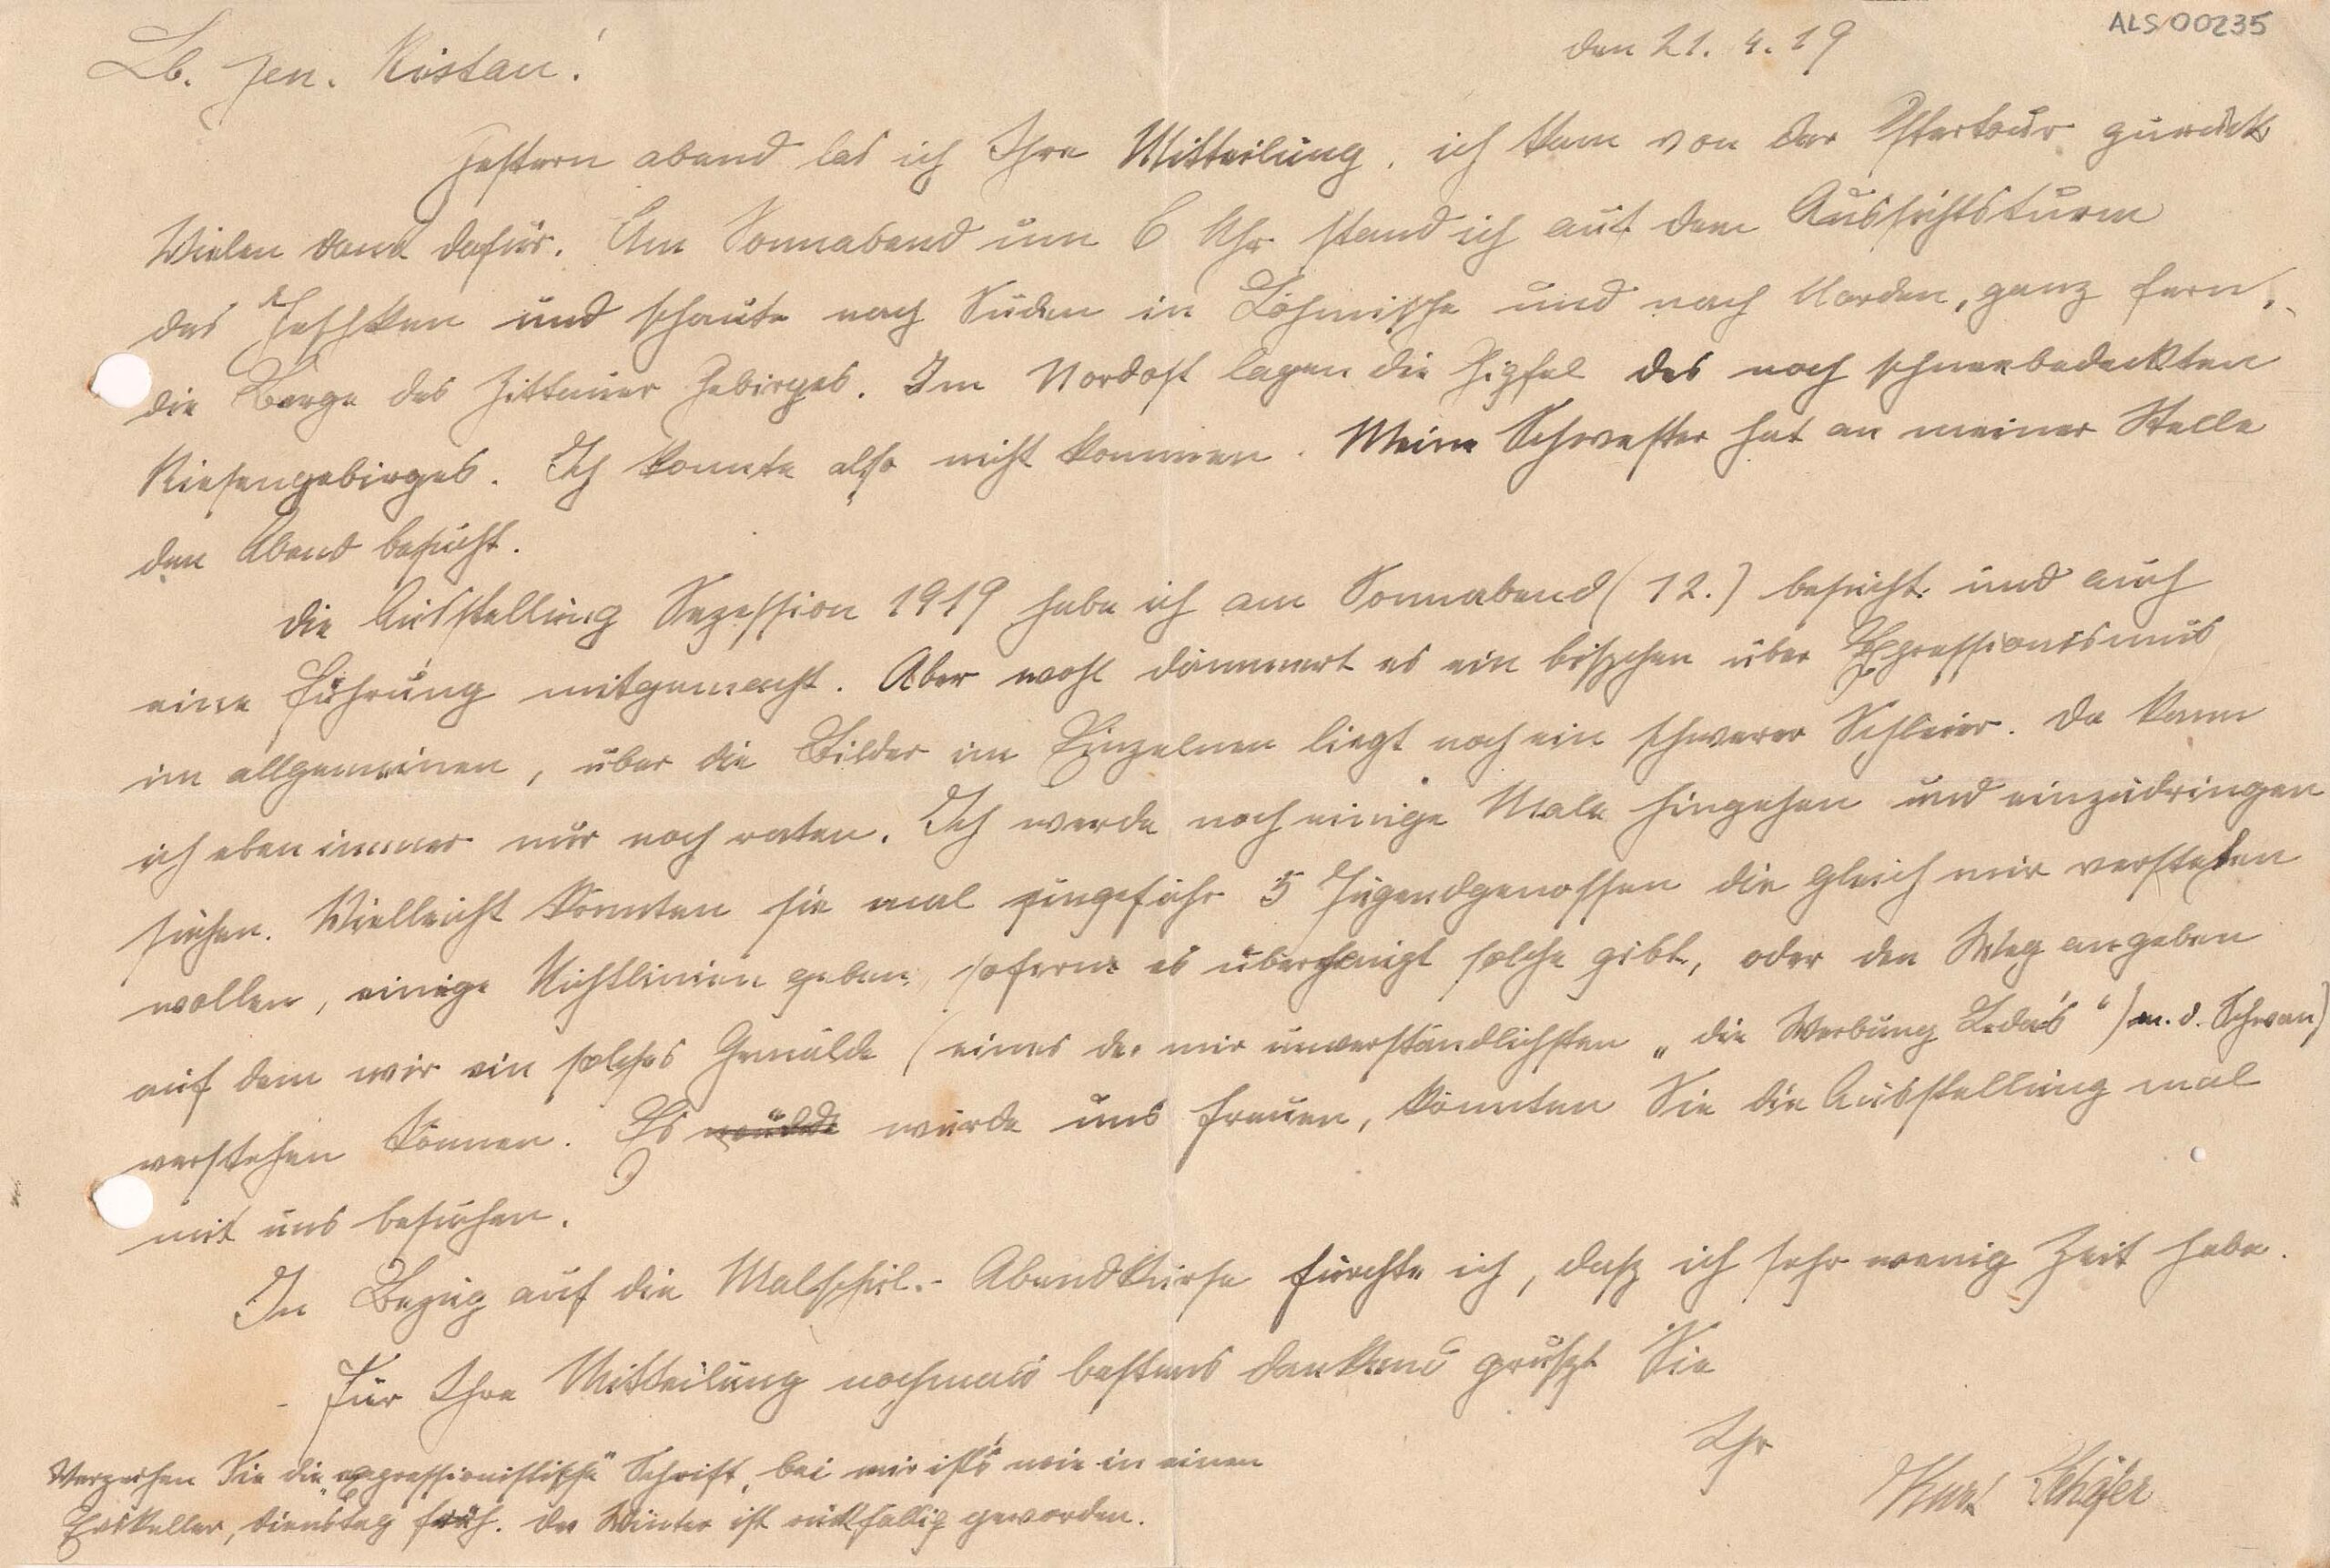 ALS 00235
den 21. 4. 19
Lb. Jen. Kistau!
Gestern abend las ich Ihre Mitteilung, ich kam von der Ostertour zurück
Vielen Dank dafür. Am Sonnabend um 6 Uhr stand ich auf dem Aussichtsturm
des Jeschken und schaute nach Süden in Böhmische und nach Norden, ganz fern,
die Berge des Zittauer Gebirges. Im Nordost lagen die Gipfel des noch schneebedeckten
Riesengebirges. Ich konnte also nicht kommen. Meine Schwester hat an meiner Stelle
den Abend besucht.
Die Ausstellung Sezession 1919 habe ich am Sonnabend (12.) besucht und auch
eine Führung mitgemacht. Aber wohl dämmert es ein bißchen über Expressionismus
im allgemeinen, über die Bilder im Einzelnen liegt noch ein schwerer Schleier. Da kann
ich eben immer nur noch raten. Ich werde noch einige Male hingehen und einzudringen
suchen. Vielleicht könnten sie mal ungefähr 5 Jugendgenossen die gleich mir verstehen
wollen, einige Richtlinien geben, sofern es überhaupt solche gibt, oder den Weg angeben
auf dem wir ein solches Gemälde (eines der mir unverständlichsten „die Werbung Leda's“) m. d. Schwan)
verstehen können. Es würde uns freuen, könnten Sie die Ausstellung mal
mit uns besuchen.
In Bezug auf die Malschül.- Abendkurse fürchte ich, daß ich sehr wenig Zeit habe.
Für Ihre Mitteilung nochmals bestens dankend grüßt Sie
Ihr
Kurt Schäfer
Verzeihen Sie die „expressionistische“ Schrift, bei mir ist's wie in einen
Eiskeller, Dienstag früh. Der Winter ist rückfällig geworden.